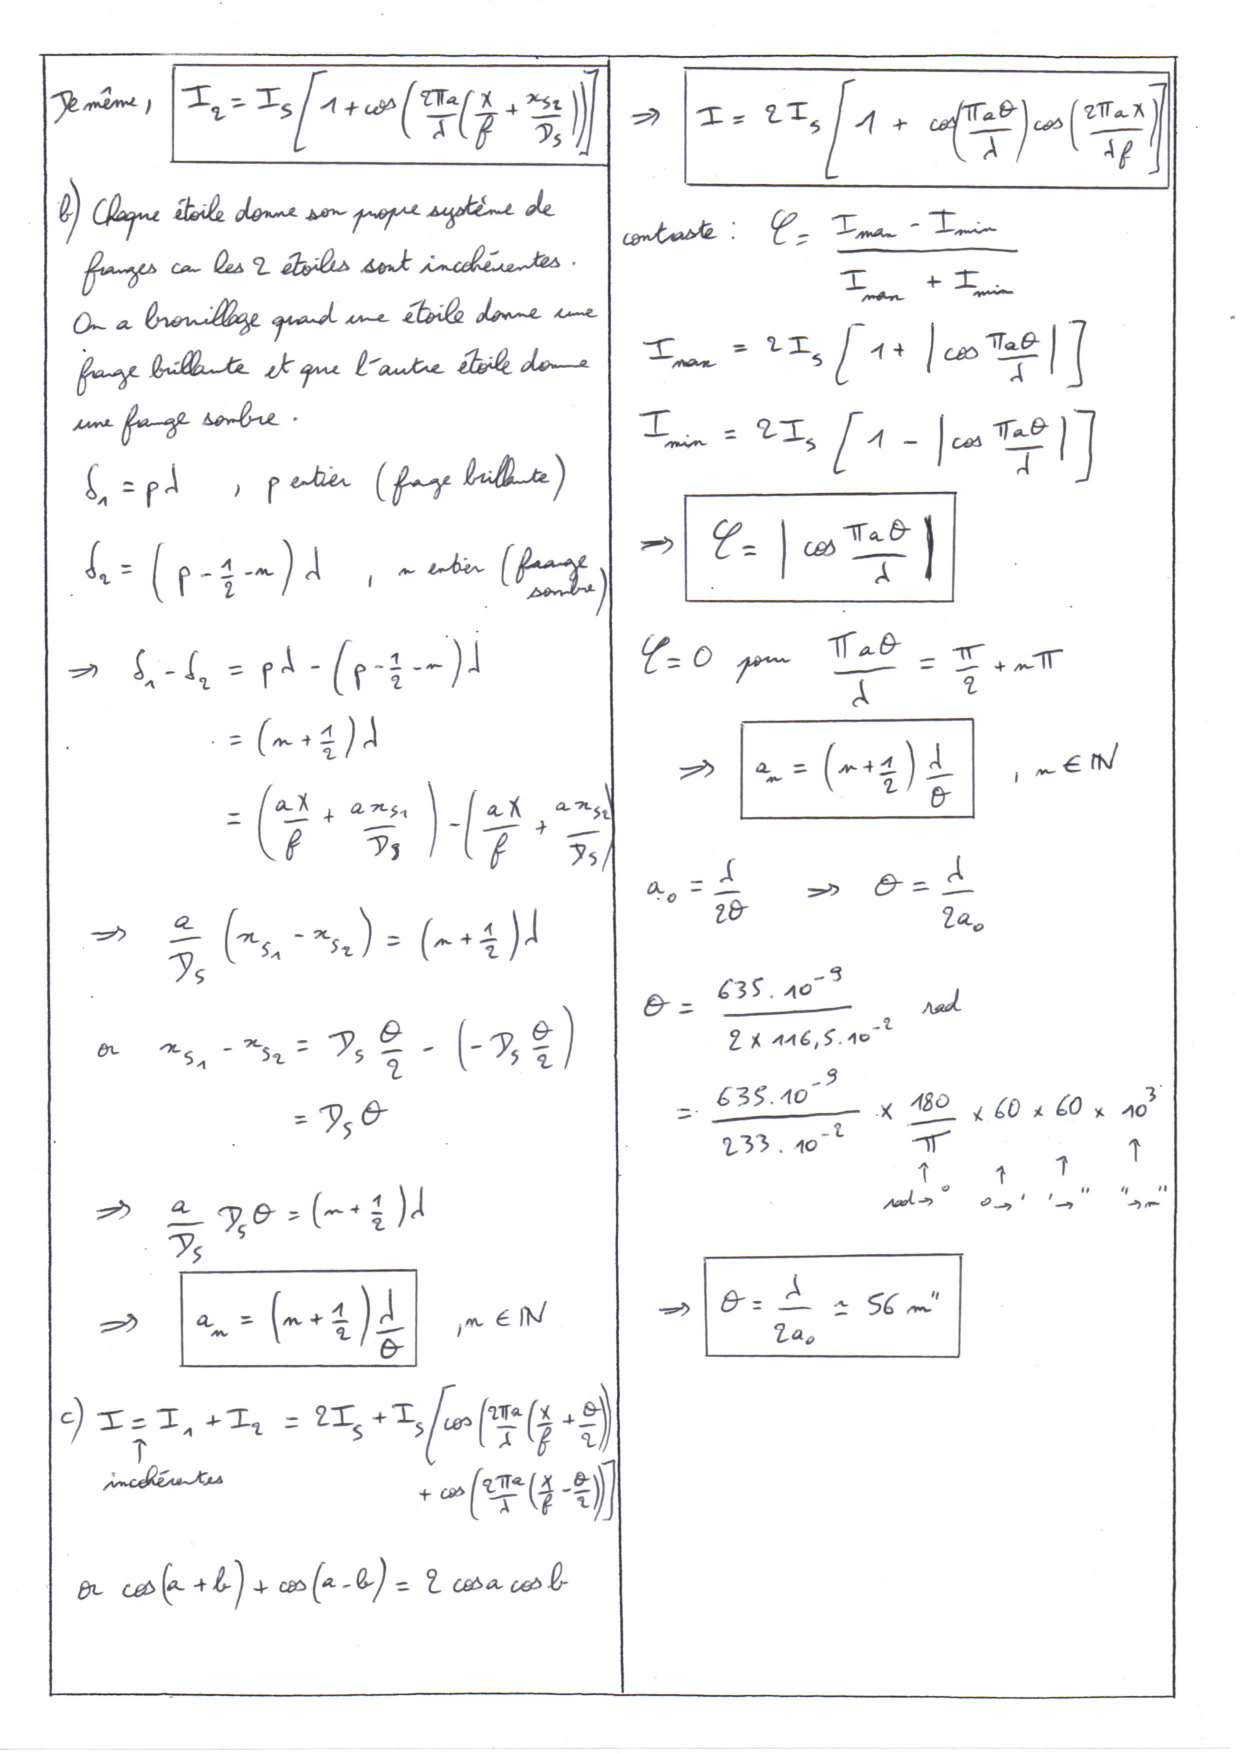 De même, I₂ = I_S [1 + cos(2πa/λ (X/f + x_S₂/D_S))]
b) Chaque étoile donne son propre système de
franges car les 2 étoiles sont incohérentes.
On a brouillage quand une étoile donne une
frange brillante et que l'autre étoile donne
une frange sombre.
δ₁ = pλ , p entier (frange brillante)
δ₂ = (p - 1/2 - n) λ , n entier (frange
sombre)
⇒ δ₁ - δ₂ = pλ - (p - 1/2 - n) λ
= (n + 1/2) λ
= (aX/f + a x_S₁/D_S) - (aX/f + a x_S₂/D_S)
⇒ a/D_S (x_S₁ - x_S₂) = (n + 1/2) λ
or x_S₁ - x_S₂ = D_S θ/2 - (-D_S θ/2)
= D_S θ
⇒ a/D_S D_S θ = (n + 1/2) λ
⇒ a_n = (n + 1/2) λ/θ , n ∈ ℕ
c) I = I₁ + I₂ = 2I_S + I_S [cos(2πa/λ (X/f + θ/2))
↑
incohérentes
+ cos(2πa/λ (X/f - θ/2))]
or cos(a + b) + cos(a - b) = 2 cos a cos b
⇒ I = 2 I_S [1 + cos(πaθ/λ) cos(2πaX/λf)]
contraste : 𝒞 = (I_max - I_min)/(I_max + I_min)
I_max = 2 I_S [1 + |cos πaθ/λ|]
I_min = 2 I_S [1 - |cos πaθ/λ|]
⇒ 𝒞 = |cos πaθ/λ|
𝒞 = 0 pour πaθ/λ = π/2 + nπ
⇒ a_n = (n + 1/2) λ/θ , n ∈ ℕ
a₀ = λ/2θ ⇒ θ = λ/2a₀
θ = 635.10⁻⁹/(2 × 116,5.10⁻²) rad
= 635.10⁻⁹/233.10⁻² × 180/π × 60 × 60 × 10³
↑ ↑ ↑ ↑
rad→° °→' '→" "→m"
⇒ θ = λ/2a₀ ≃ 56 m"